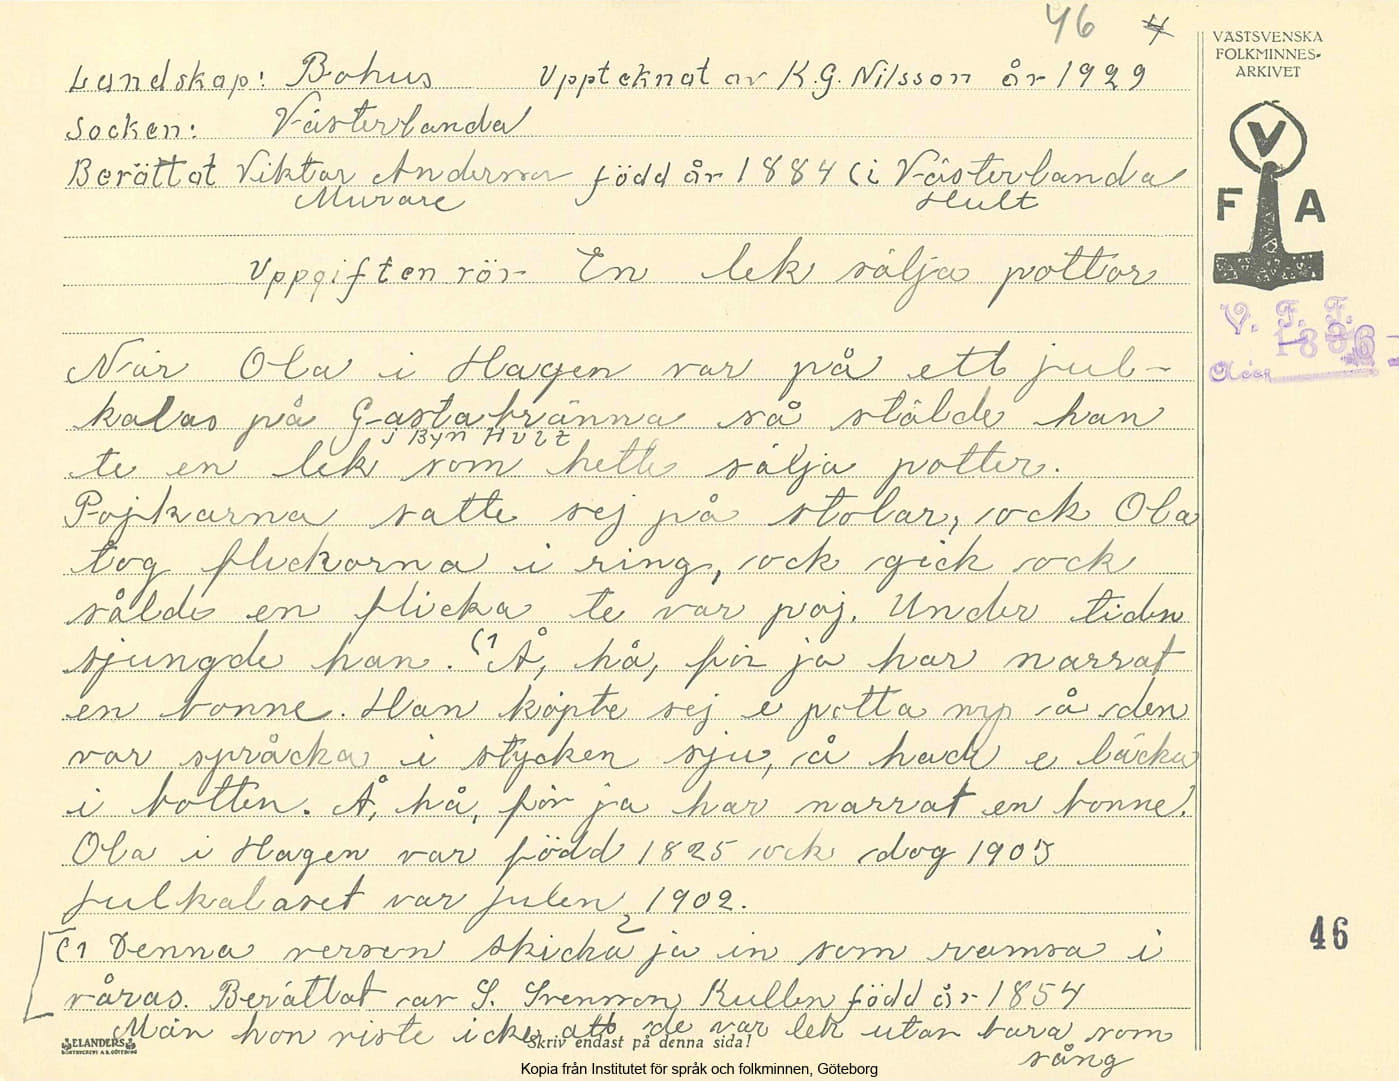 46 4
VÄSTSVENSKA
FOLKMINNES-
ARKIVET
V
F A
V. F. F.
1886
Landskap: Bohus Upptecknat av K.G. Nilsson år 1929
Socken: Västerlanda
Berättat Viktor Andersson född år 1884 (i Västerlanda
Murare Hult
Uppgiften rör En lek sälja pottor
När Ola i Hagen var på ett jul-
kalas på Gastabränna så stälde han
i Byn Hult
te en lek som hette sälja potter.
Pojkarna satte sej på stolar, ock Ola
tog flickorna i ring, ock gick ock
sålde en flicka te var poj. Under tiden
sjungde han. (1 Å, hå, för ja har narrat
en bonne. Han köpte sej e potta ny å den
var språcka i stycken sju, å hade e läcka
i botten. Å, hå, för ja har narrat en bonne!
Ola i Hagen var född 1825 ock dog 1903
Julkalaset var julen 1902.
(1 Denna versen skicka 2 ja in som ramsa i
våras. Berättat av S. Svensson Kullen född år 1854
Män hon viste icke att de var lek utan bara som
sång
46
ELANDERS
BOKTRYCKERI A.B. GÖTEBORG
Skriv endast på denna sida!
Kopia från Institutet för språk och folkminnen, Göteborg